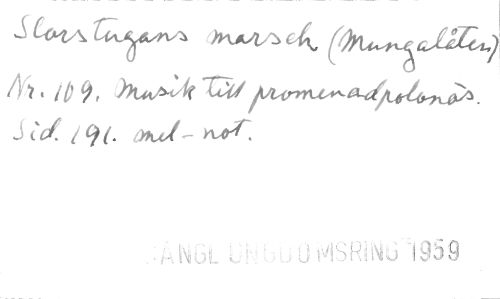 Storstugans marsch (Mungalåten)
Nr. 109. Musik till promenadpolonäs.
Sid. 191. mel-not.
SÄNGL UNGDOMSRING 1959